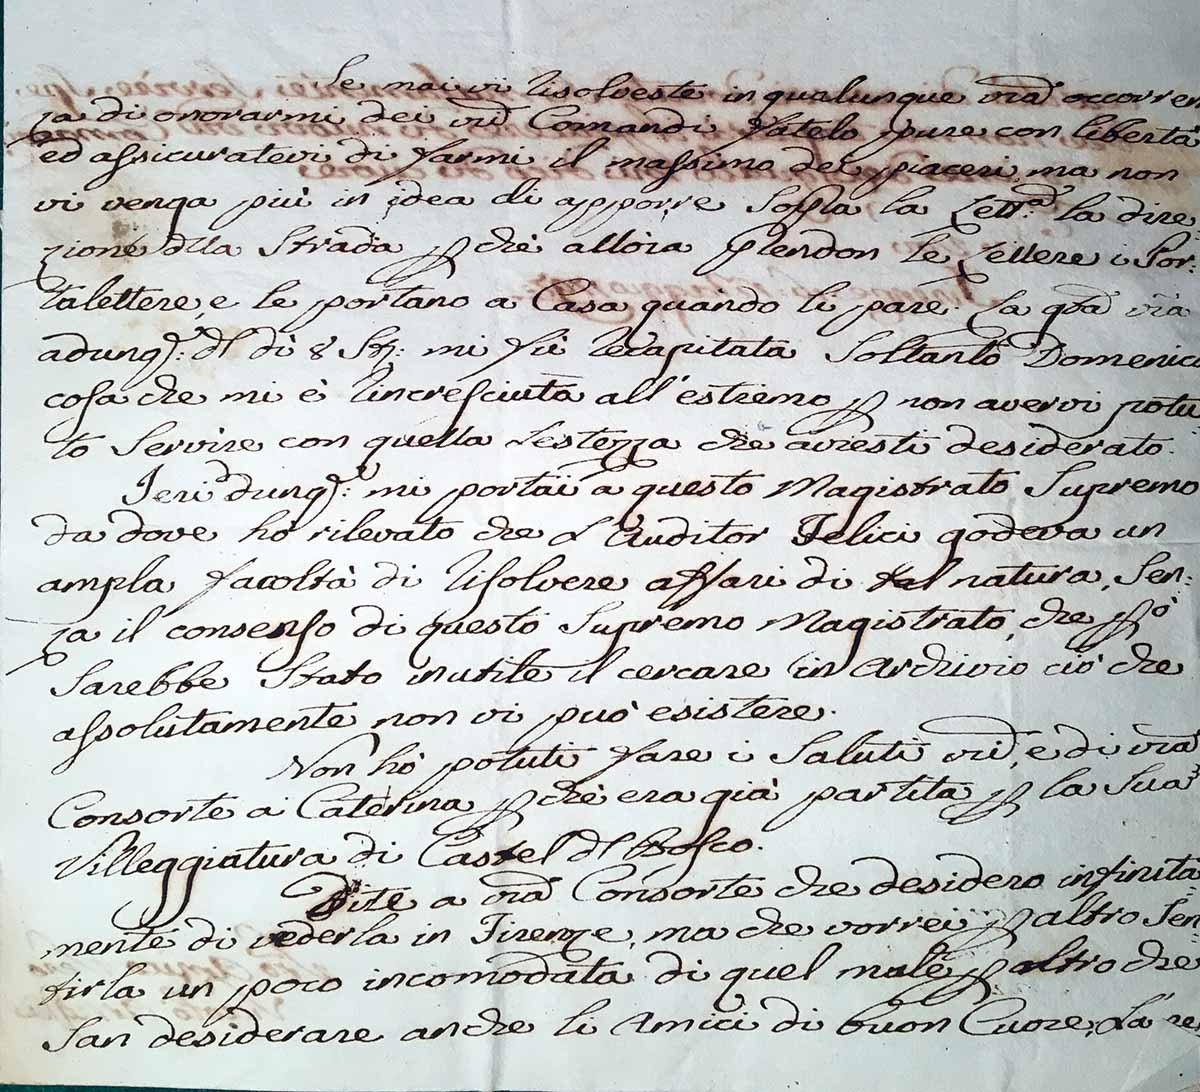 Se mai vi risolveste in qualunque vrã occorren
za di onorarmi dei vrĩ Comandi fatelo pure con libertà
ed assicuratevi di farmi il massimo dei piaceri, ma non
vi venga più in idea di apporre sopra la Lettª la dire
zione della Strada p chè allora prendon le Lettere i Por
talettere, e le portano a Casa quando li pare. La vrã
adunq: del dì 8 Stt: mi fù recapitata Soltanto Domenica
cosa che mi è rincresciuta all'estremo p non avervi potu
to Servire con quella lestezza che avresti desiderato.
Jeri dunq: mi portai a questo Magistrato Supremo
da dove hò rilevato che l'Auditor Felici godeva un
ampla facoltà di risolvere affari di tal natura, Sen:
za il consenso di questo Supremo Magistrato, che pò
Sarebbe Stato inutile il cercare in Archivio ciò che
assolutamente non vi può esistere.
Non hò potuti fare i Saluti vrĩ, e di vrã
Consorte a Caterina p chè era già partita p la Sua
Villeggiatura di Castel del Bosco.
Dite a vrã Consorte che desidero infinita
mente di vederla in Firenze, ma che vorrei p altro Sen
tirla un poco incomodata di quel male p altro che
San desiderare anche li Amici di buon Cuore, La re